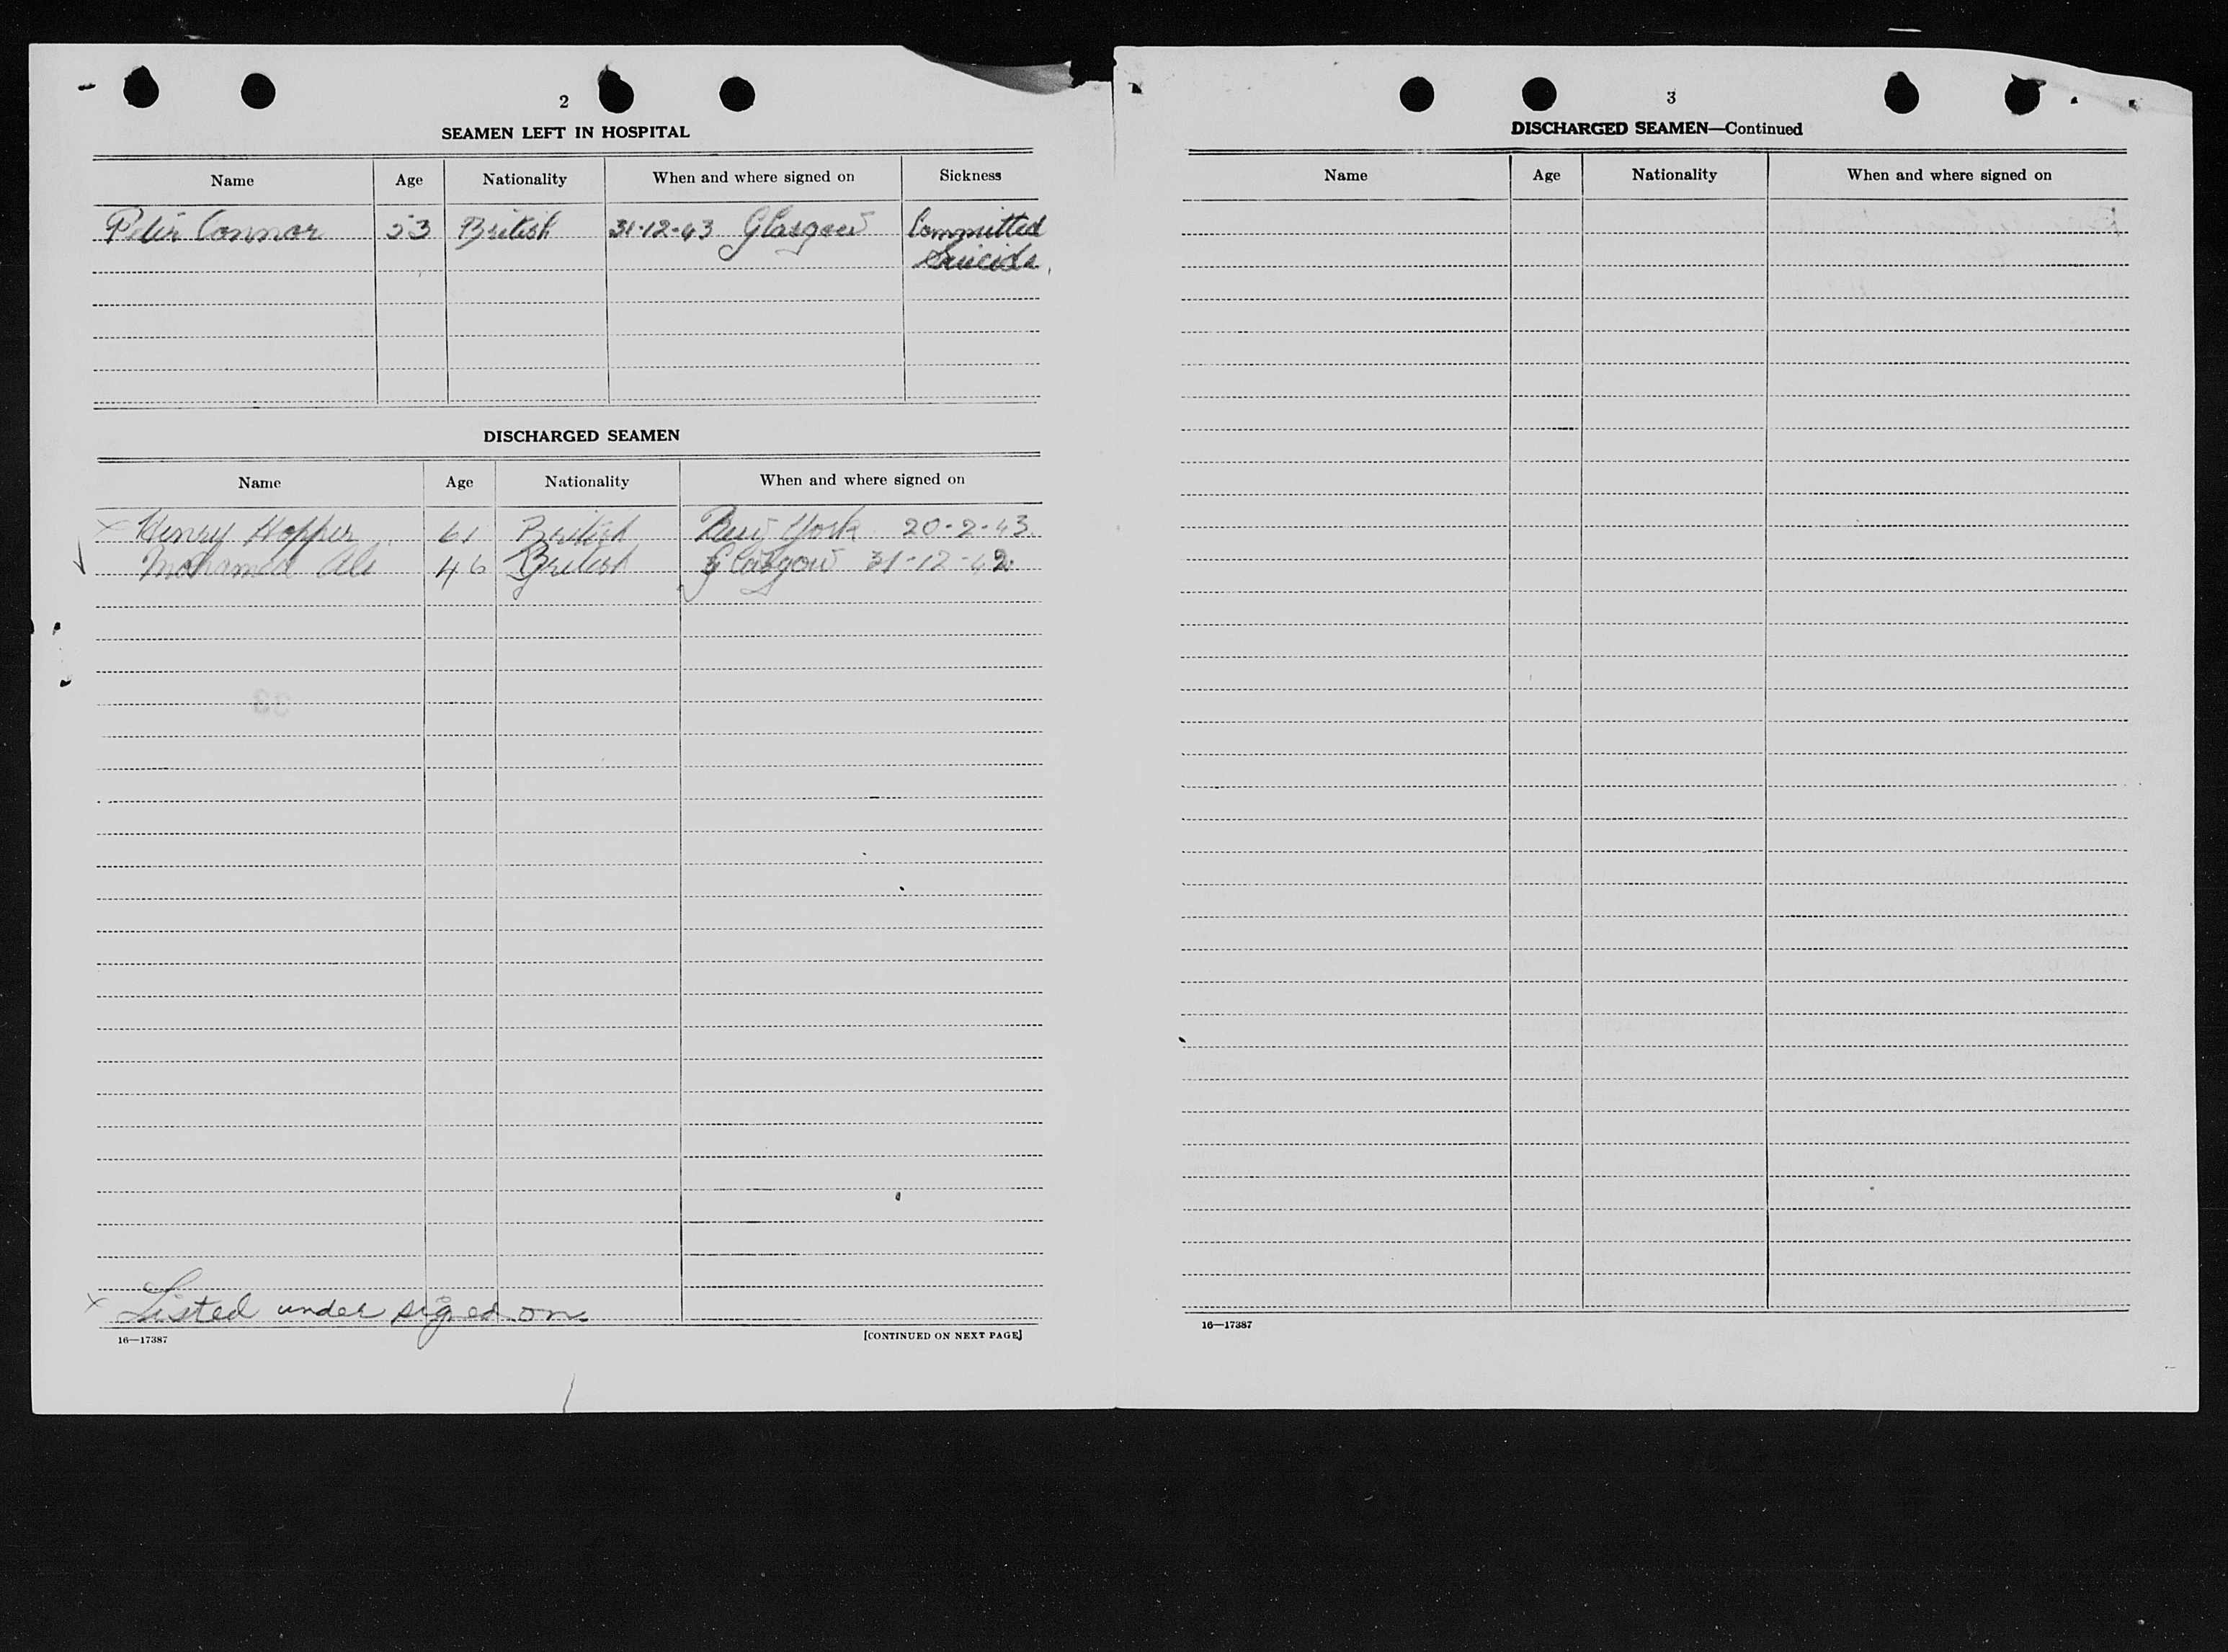 2
SEAMEN LEFT IN HOSPITAL
Name Age Nationality When and where signed on Sickness
Peter Connor 53 British 31-12-43 Glasgow Committed
Suicide
DISCHARGED SEAMEN
Name Age Nationality When and where signed on
x Henry Hopper 61 British New York 20-2-43
Mohamed Ali 46 British Glasgow 31-12-42
x Listed under signed on
16—17387 [CONTINUED ON NEXT PAGE]
3
DISCHARGED SEAMEN—Continued
Name Age Nationality When and where signed on
16—17387